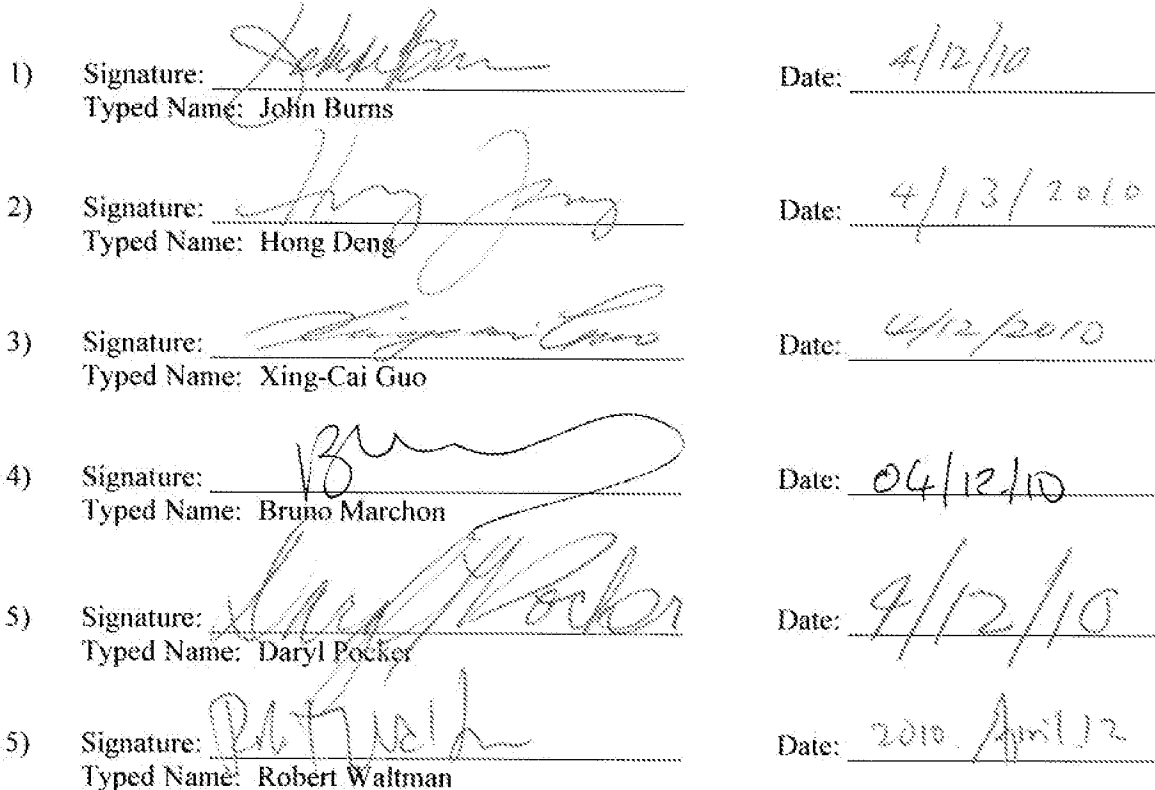 1) Signature: John Burns Date: 4/12/10
Typed Name: John Burns
2) Signature: Hong Deng Date: 4/13/2010
Typed Name: Hong Deng
3) Signature: Date: 4/12/2010
Typed Name: Xing-Cai Guo
4) Signature: Date: 04/12/10
Typed Name: Bruno Marchon
5) Signature: Daryl Pocker Date: 4/12/10
Typed Name: Daryl Pocker
5) Signature: Date: 2010 April 12
Typed Name: Robert Waltman